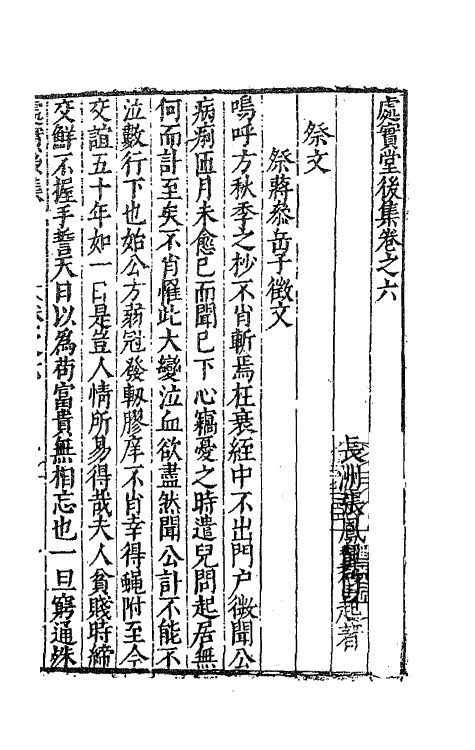 處實堂後集卷之六
長洲張鳳翼伯起著
祭文
祭蔣叅岳子徵文
嗚呼方秋季之杪不肖斬焉在衰絰中不出門户微聞公
病痢匝月未愈巳而聞巳下心竊憂之時遣兒問起居無
何而訃至矣不肖惟此大變泣血欲盡然聞公訃不能不
泣數行下也始公方弱冠發軔膠庠不肖幸得蝇附至今
交誼五十年如一日是豈人情所易得哉夫人貧賤時締
交鮮不握手誓天日以爲茍富貴無相忘也一旦窮通殊